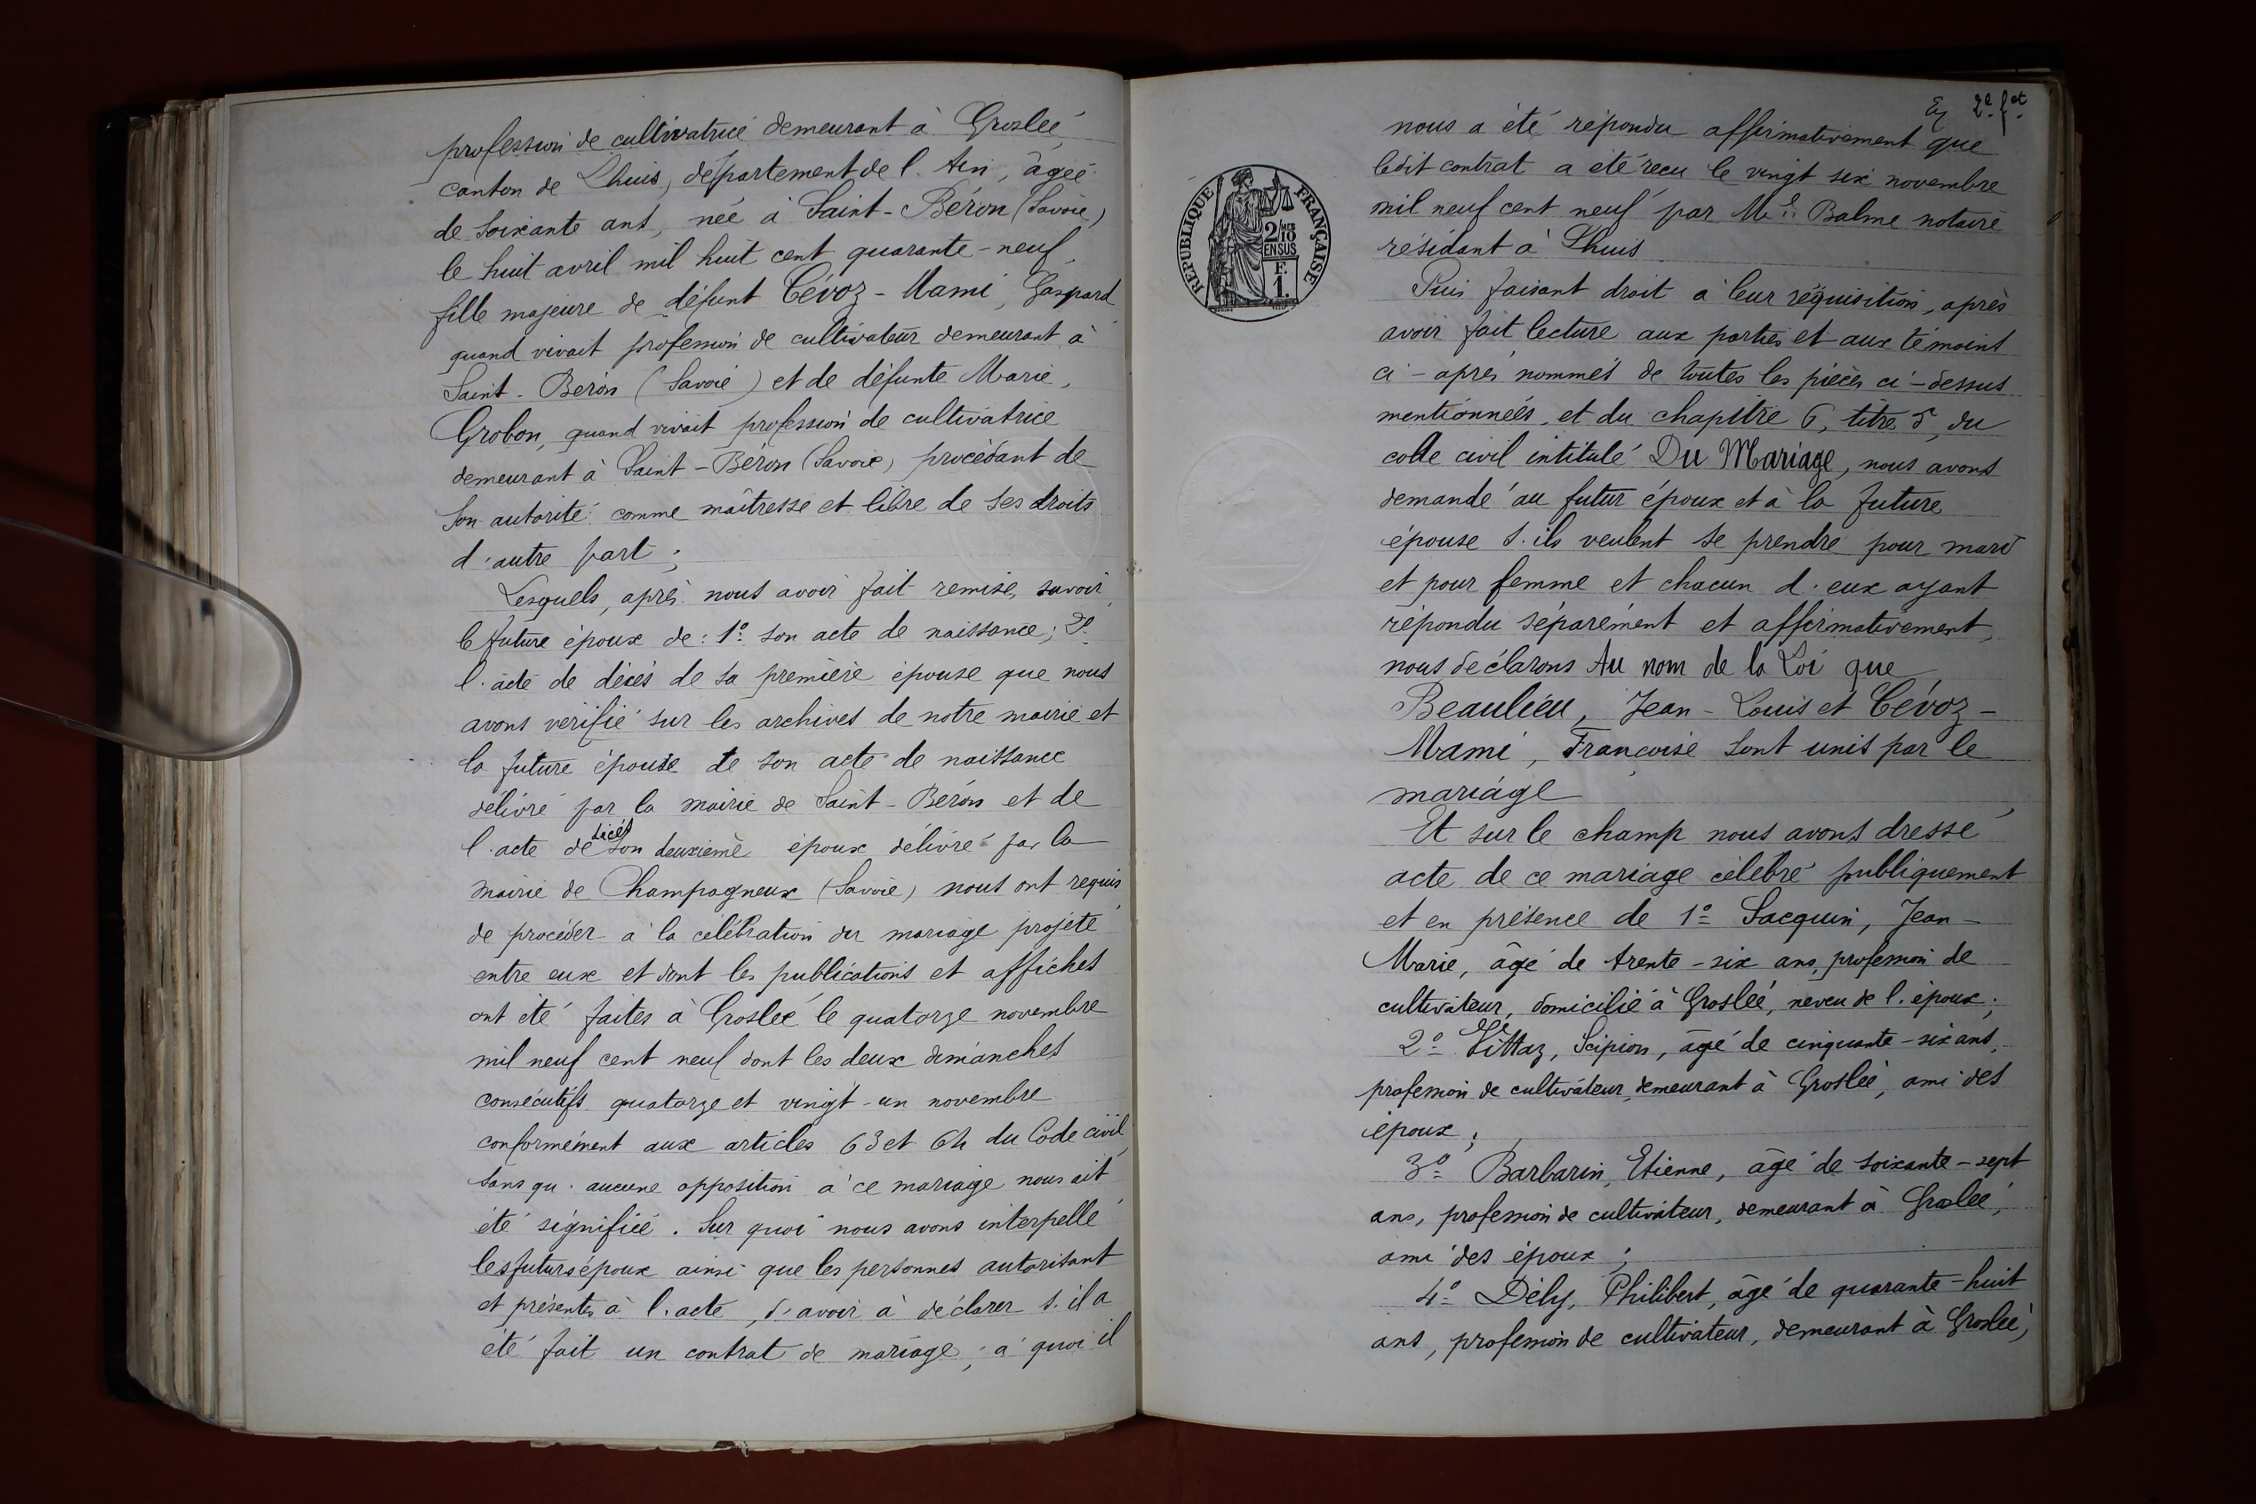 profession de cultivatrice demeurant à Groslée
canton de Lhuis, département de l'Ain, âgée
de soixante ans, née à Saint-Béron (Savoie)
le huit avril mil huit cent quarante-neuf,
fille majeure de défunt Cévoz-Mami, Gaspard
quand vivait profession de cultivateur demeurant à
Saint-Béron (Savoie) et de défunte Marie,
Grobon, quand vivait profession de cultivatrice
demeurant à Saint-Béron (Savoie) procédant de
son autorité comme maîtresse et libre de ses droits
d'autre part;
Lesquels, après nous avoir fait remise, savoir,
le future époux de: 1º son acte de naissance; 2º
l'acte de décès de sa première épouse que nous
avons vérifié sur les archives de notre mairie et
la future épouse de son acte de naissance
délivré par la mairie de Saint-Béron et de
l'acte de décès son deuxième époux délivré par la
mairie de Champagneux (Savoie) nous ont requis
de procéder à la célébration du mariage projeté
entre eux et dont les publications et affiches
ont été faites à Groslée le quatorze novembre
mil neuf cent neuf dont les deux dimanches
consécutifs quatorze et vingt-un novembre
conformément aux articles 63 et 64 du Code civil,
sans qu'aucune opposition à ce mariage nous ait
été signifiée. Sur quoi nous avons interpellé
les futurs époux ainsi que les personnes autorisant
et présentes à l'acte, d'avoir à déclarer s'il a
été fait un contrat de mariage; à quoi il
2e f et
nous a été répondu affirmativement que
ledit contrat a été reçu le vingt six novembre
mil neuf cent neuf par Me Balme notaire
résidant à Lhuis
REPUBLIQUE FRANÇAISE
2/10 EN SUS
F. 1.
Puis faisant droit à leur réquisition, après
avoir fait lecture aux parties et aux témoins
ci-après nommés de toutes les pièces ci-dessus
mentionnées, et du chapitre 6, titre 5, du
code civil intitulé Du Mariage, nous avons
demandé au futur époux et à la future
épouse s'ils veulent se prendre pour mari
et pour femme et chacun d'eux ayant
répondu séparément et affirmativement,
nous déclarons Au nom de la Loi que
Beaulieu, Jean-Louis et Cévoz-
Mami, Françoise sont unis par le
mariage
Et sur le champ nous avons dressé
acte de ce mariage célébré publiquement
et en présence de 1º Sacquin, Jean-
Marie, âgé de trente-six ans, profession de
cultivateur, domicilié à Groslée, neveu de l'époux;
2º Vittaz, Scipion, âgé de cinquante-six ans,
profession de cultivateur, demeurant à Groslée, ami des
époux;
3º Barbarin, Etienne, âgé de soixante-sept
ans, profession de cultivateur, demeurant à Groslée,
ami des époux;
4º Dély, Philibert, âgé de quarante-huit
ans, profession de cultivateur, demeurant à Groslée,